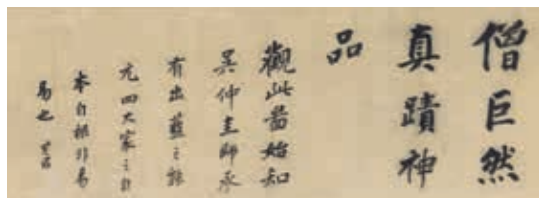 僧巨然
真蹟神
品
觀此啚始知
吴仲圭師承
有出藍之
元四大家之
本自根非易
易也